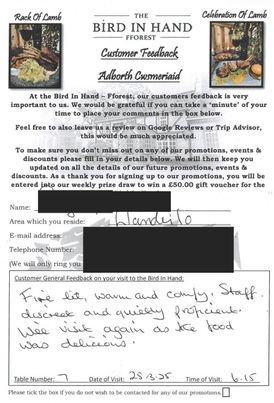 Rack Of Lamb
Celebration Of Lamb
THE
BIRD IN HAND
FFOREST
Customer Feedback
Adborth Cwsmeriaid
At the Bird In Hand – Fforest, our customers feedback is very
important to us. We would be grateful if you can take a ‘minute’ of your
time to place your comments in the box below.
Feel free to also leave us a review on Google Reviews or Trip Advisor,
this would be much appreciated.
To make sure you don't miss out on any of our promotions, events &
discounts please fill in your details below. We will then keep you
updated on all the details of our future promotions, events &
discounts. As a thank you for signing up to our promotions, you will be
entered into our weekly prize draw to win a £50.00 gift voucher for the
Name:
Area which you reside: Llandeilo
E-mail address:
Telephone Number:
(We will only ring you
Customer General Feedback on your visit to the Bird In Hand:
Fire lit, warm and comfy. Staff
discreet and quietly proficient.
Will visit again as the food
was delicious.
Table Number: 7 Date of Visit: 25-3-25 Time of Visit: 6-15
Please tick the box if you do not wish to be contacted for any of our promotions.